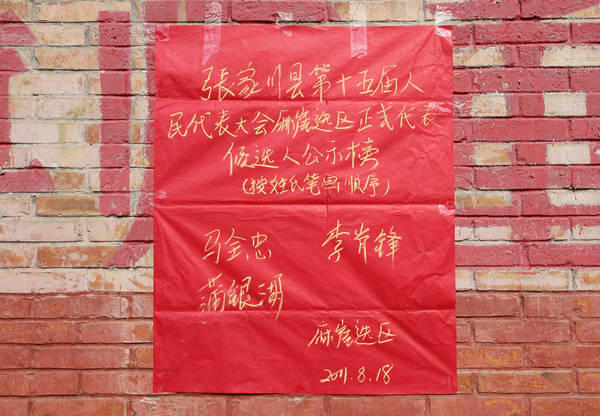 張家川县第十五届人
民代表大会麻崖选区正式代表
候选人公示榜
(按姓氏笔画顺序)
马全忠 李肖锋
蒲银湖
麻崖选区
2011.8.18